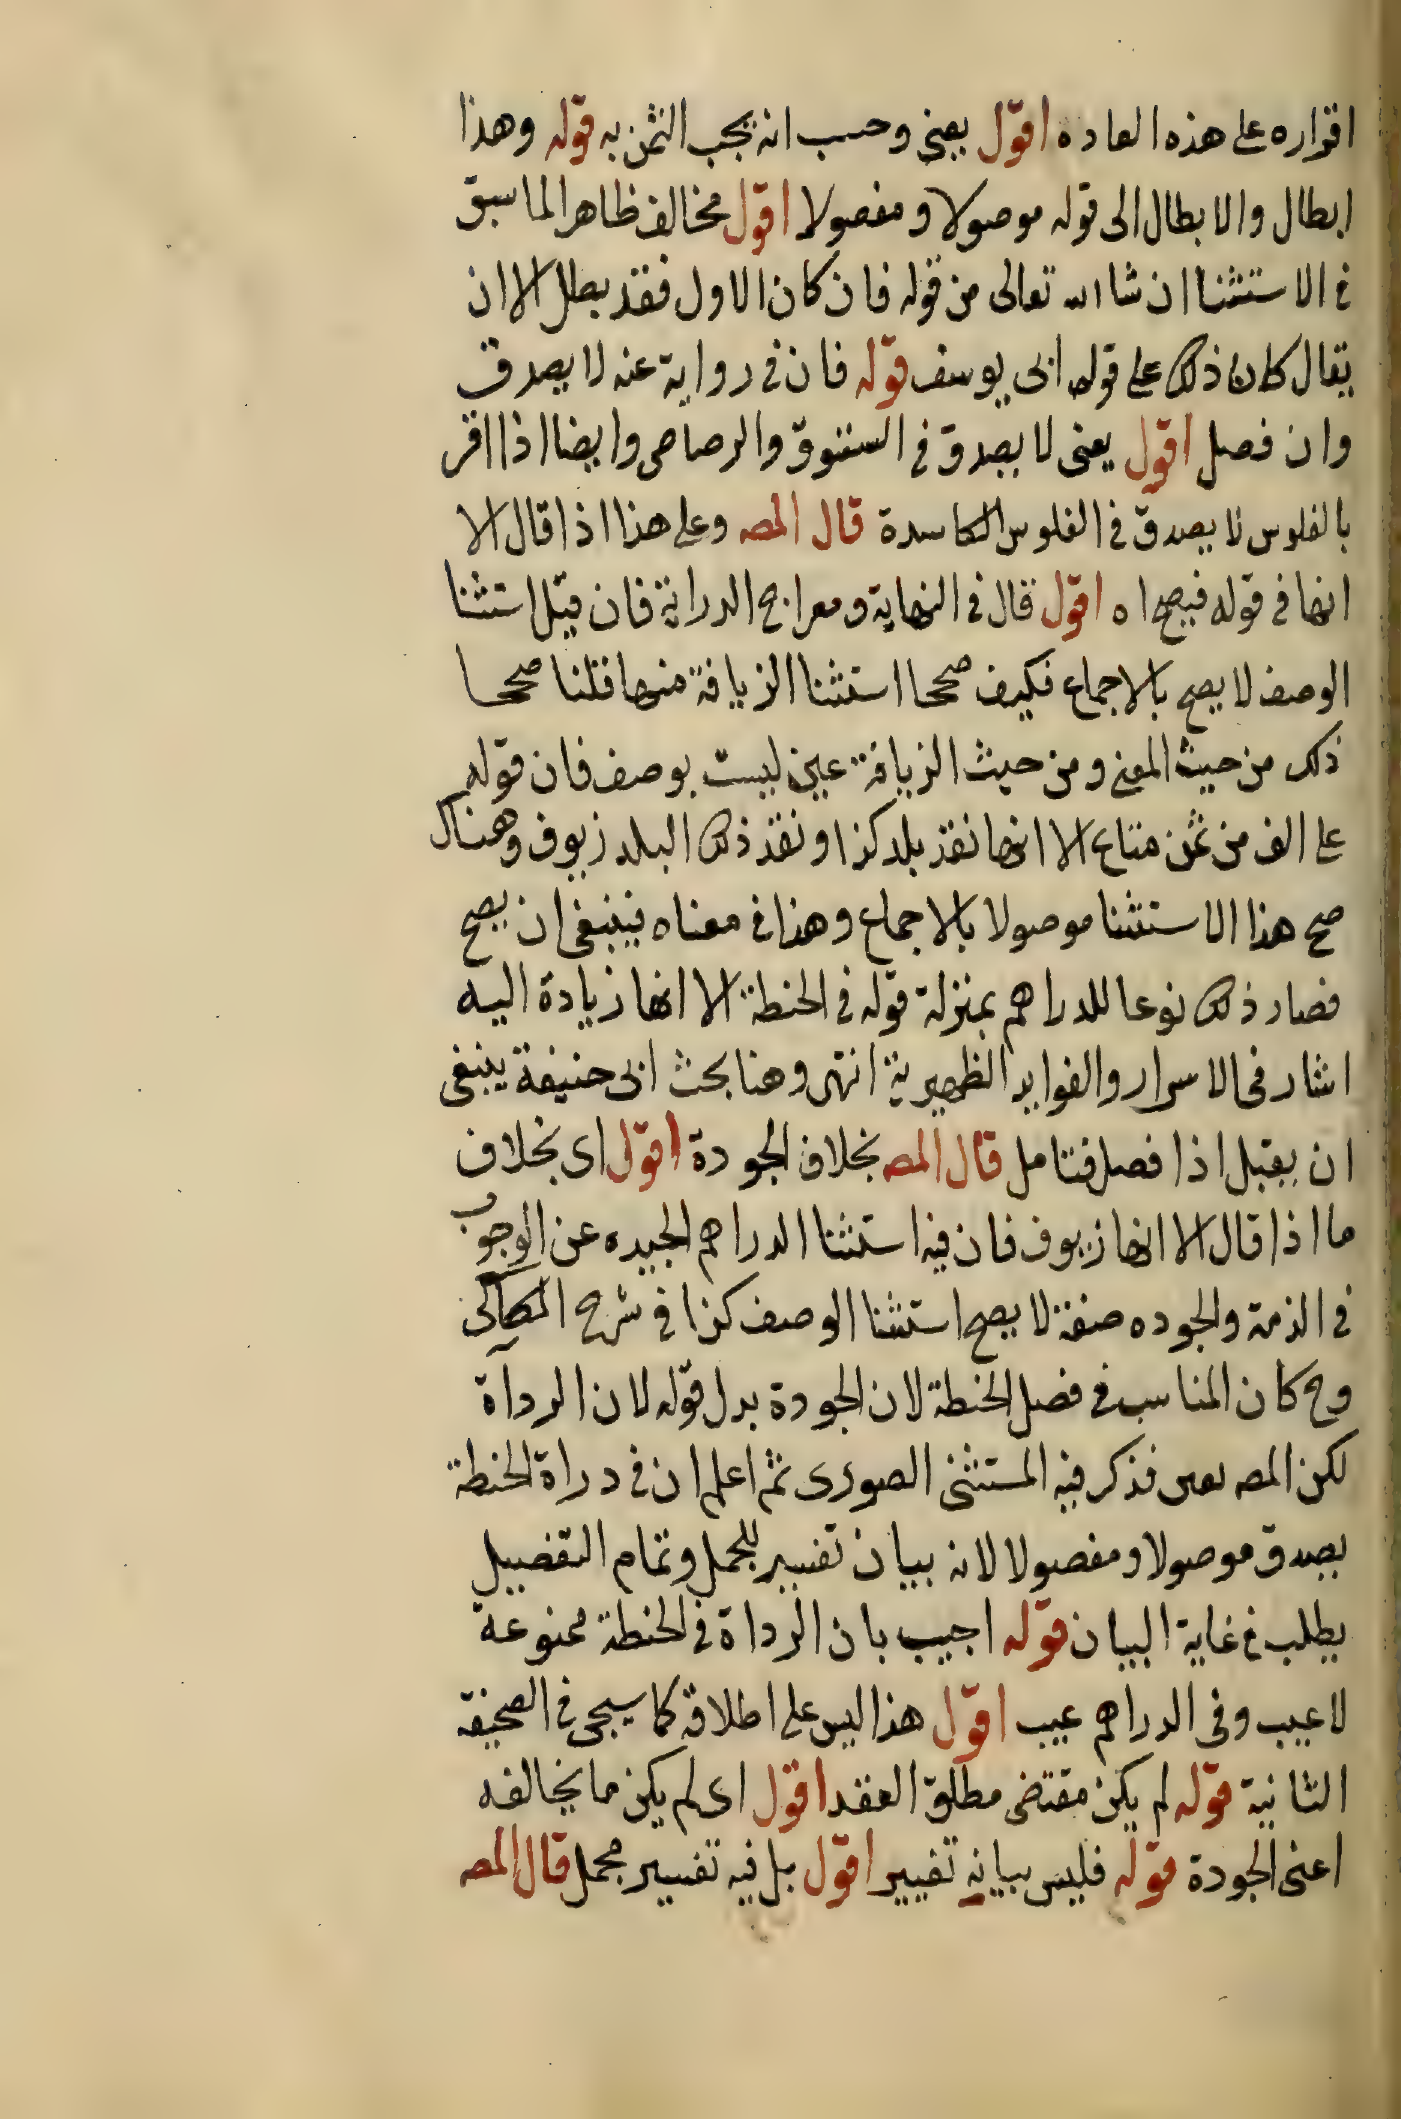 اقراره على هذه العاده اقول يعني وحسب انه يجب الثمن به قوله وهذا
ابطال والابطال الى قوله موصولا ومفصولا اقول مخالف ظاهرا لما سبق
في الاستثنا ان شا الله تعالى من قوله فان كان الاول فقد بطل الا ان
يقال كان ذلك على قول ابى يوسف قوله فان في رواية عنه لا يصدق
وان فصل اقول يعنى لا يصدق في الستوق والرصاص وايضا اذا اقر
بالفلوس لا يصدق في الفلوس الكاسدة قال المصـ وعلى هذا اذا قال الا
انها في قوله فيصح اه اقول قال في النهاية ومعراج الدراية فان قيل استثنا
الوصف لا يصح بالاجماع فكيف صححا استثنا الزيافة منها قلنا صححا
ذلك من حيث المعنى ومن حيث الزيافة عين ليست بوصف فان قوله
على الف من ثمن متاع الا انها نقد بلد كذا ونقد ذلك البلد زيوف وهناك
صح هذا الاستثنا موصولا بالاجماع وهذا في معناه فينبغى ان يصح
فصار ذلك نوعا للدراهم بمنزلة قوله في الحنطة الا انها زيادة اليه
اشار فى الاسرار والفوايد الظهيرية انتهى وهنا بحث ابى حنيفة ينبغى
ان يقبل اذا فصل فتامل قال المصـ بخلاف الجودة اقول اى بخلاف
ما اذا قال الا انها زيوف فان فيه استثنا الدراهم الجيده عن الوجوب
في الذمة والجوده صفة لا يصح استثنا الوصف كذا في شرح الكاكى
وح كان المناسب في فصل الحنطة لان الجودة بدل قوله لان الرداة
لكن المصـ فذكر فيه المستثنى الصورى ثم اعلم ان في دراة الحنطة
يصدق موصولا ومفصولا لانه بيان تفسير للجمل وتمام التفصيل
يطلب في غاية البيان قوله اجيب بان الرداة في الحنطة ممنوعة
لا عيب وفى الدراهم عيب اقول هذا ليس على اطلاقه كما سيجى في الصحيفة
الثانية قوله لم يكن مقتضى مطلق العقد اقول اى لم يكن مما يخالفه
اعنى الجودة قوله فليس ببيانه تغيير اقول بل فيه تفسير مجمل قال المصـ